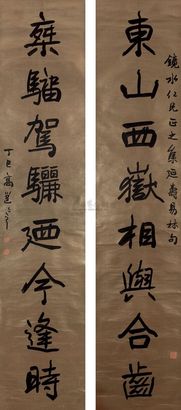 鏡水仁兄正之集延壽易林句
東山西嶽相與合齒
棄騮駕驪迺今逢時
丁巳高邕